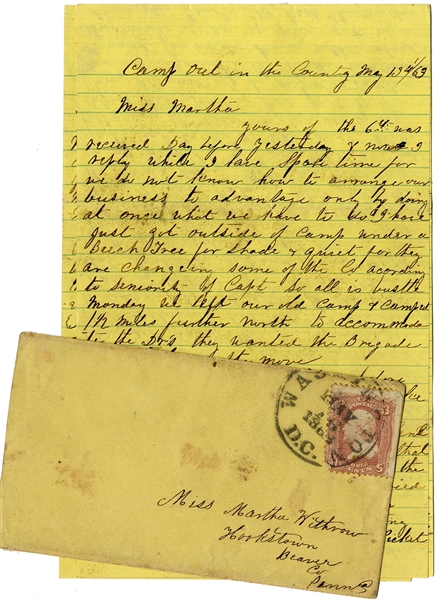 Camp out in the Country May 13th/63
Miss Martha
yours of the 6th was
received Day before Yesterday & now I
reply while I have Spare time for
we do not know how to arrange our
business to advantage only by doing
at once what we have to do I have
just got outside of Camp under a
Beech Tree for Shade & quiet for they
are changeing some of the Co acording
to Seniority of Capts so all is bustle
Monday we left our old Camp & Camped
1 1/2 miles further north to accommoda
te the Drs they wanted the Brigade
the move
that
the
Picket
WASHINGTON
MAY
186
D.C.
3
Miss Martha Withrow
Hookstown
Beaver
Co
Penna